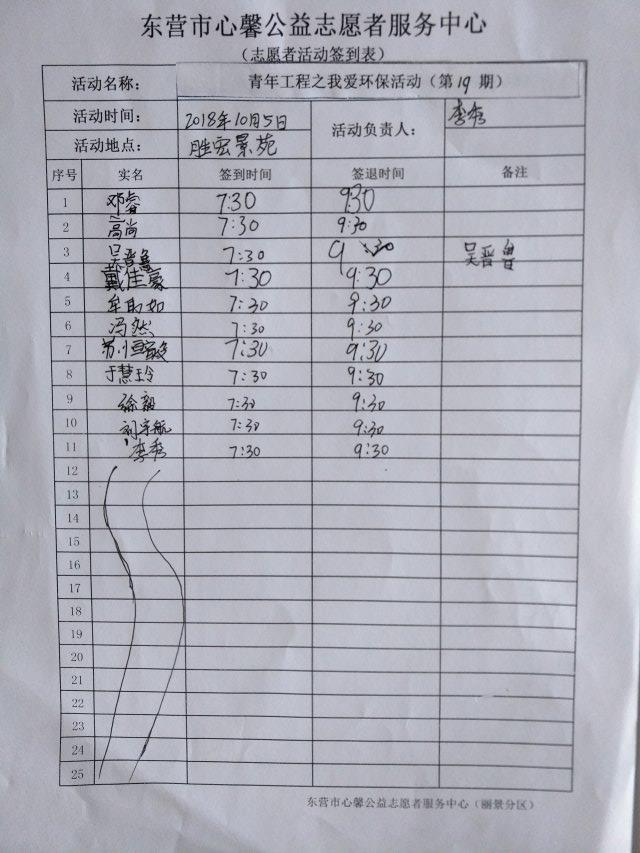 东营市心馨公益志愿者服务中心
（志愿者活动签到表）
活动名称： 青年工程之我爱环保活动（第19期）
活动时间： 2018年10月5日 活动负责人： 李秀
活动地点： 胜宏景苑
序号 实名 签到时间 签退时间 备注
1 邓睿 7:30 9:30
2 高尚 7:30 9:30
3 吴晋鲁 7:30 9:30 吴晋鲁
4 戴佳豪 7:30 9:30
5 牟取如 7:30 9:30
6 冯然 7:30 9:30
7 苏恒 7:30 9:30
8 于慧玲 7:30 9:30
9 徐毅 7:30 9:30
10 刘宇航 7:30 9:30
11 李秀 7:30 9:30
12
13
14
15
16
17
18
19
20
21
22
23
24
25
东营市心馨公益志愿者服务中心（丽景分区）